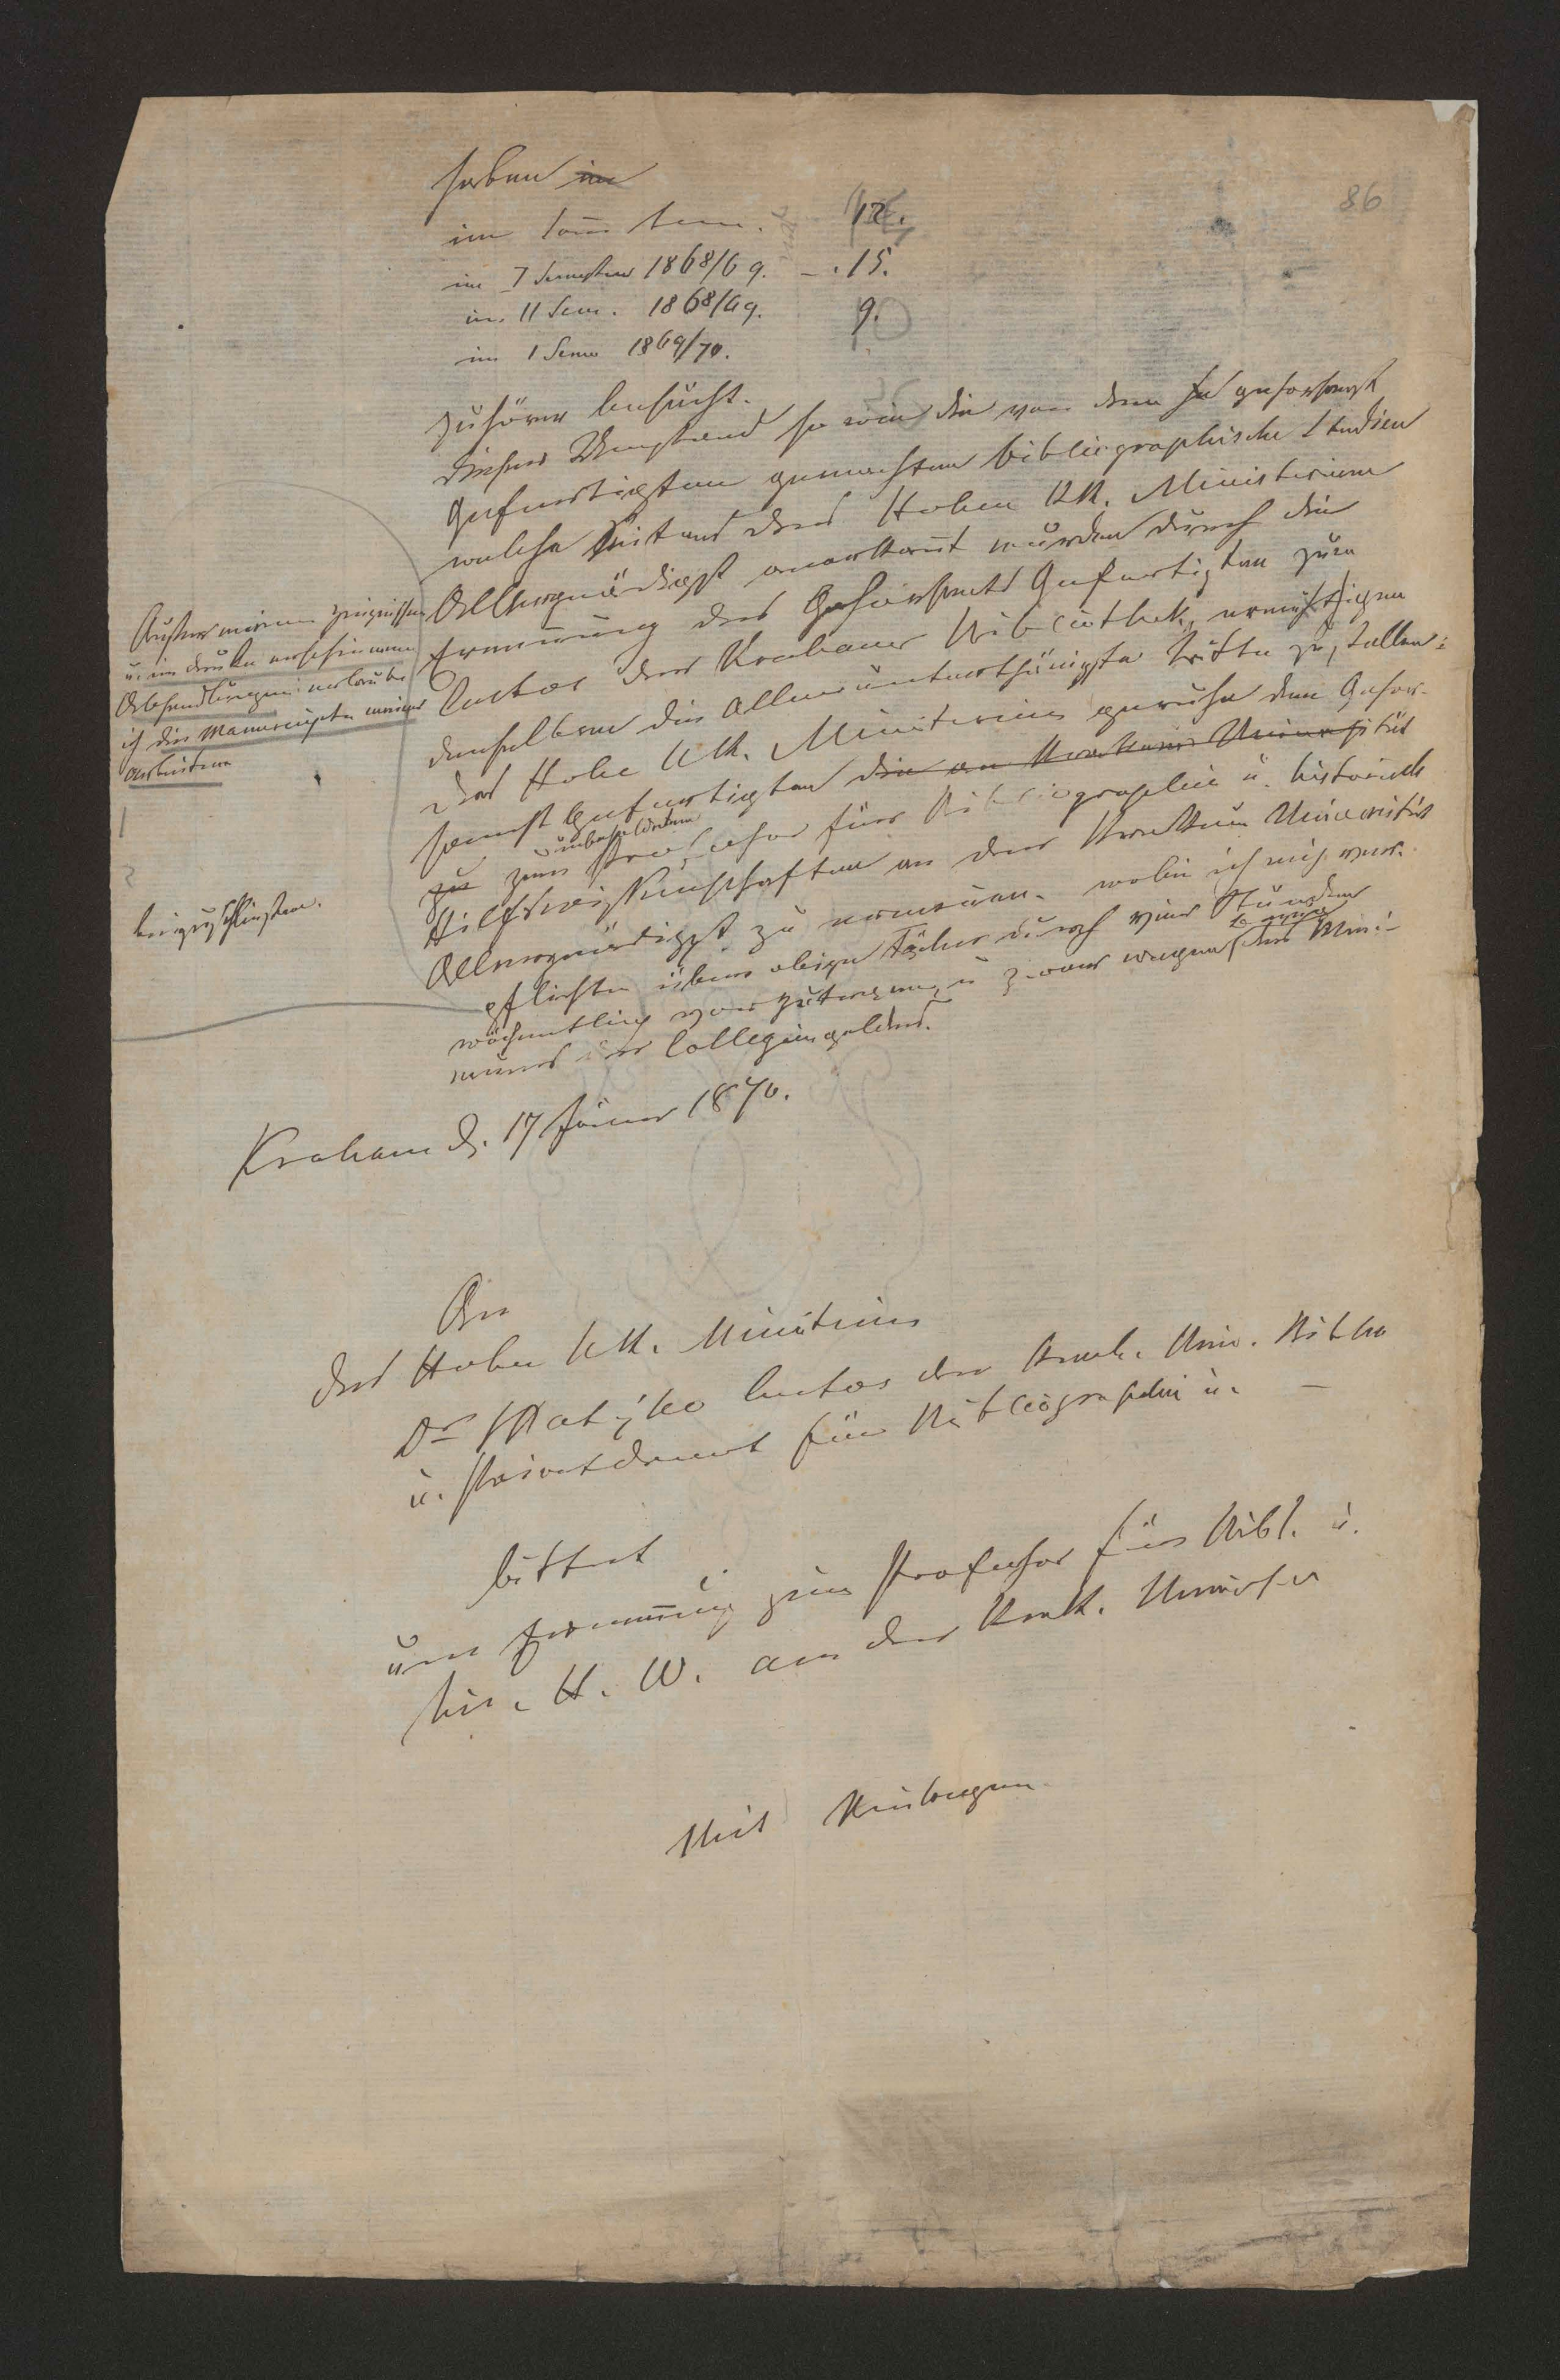 86
haben im
im Som Sem. 12.
im I Semester 1868/69. – . 15.
im II Sem. 1868/69. 9.
im I Sem 1869/70.
Zuhörer besucht.
Dieser Umstand so wie die von dem gehorsamst
Gefertigten gemachten bibliographische Studien
welche Seitens des Hohen KK. Ministerium
Allergnädigst anerkannt wurden durch die
Ernennung des Gehorsamst Gefertigten zum
Custos der Krakauer Bibliothek, ermuthigen
denselben die allerunterthänigste Bitte zu stellen:
Das Hohe KK. Ministerium geruhe dem Gehor-
samst Gefertigten die an Krakauer Universität
zu zum unbesoldeten Professor für Bibliographie u. historische
Hilfswissenschaften an der Krakauer Universität
Allergnädigst zu ernennen. wobei ich mich ver-
pflichte über obige Fächer durch vier Stunden
wöchentlich vorzutragen, u zwar wegen
des Collegiengeldes.
Außer meinen Zeugnissen
u. im Drucke erschienenen
Abhandlungen erlaube
ich die Manuscripte meiner
Arbeiten
1
2
beizuschließen.
Krakau d. 17 Jäner 1870.
An
das Hohe KK. Ministerium
Dr Matyko Custos der Krak. Univ. Biblio
u. Privatdocent für Bibliographie u. –
bittet
um Ernennung zum Professor für Bibl. u.
his. H. W. an der Krak. Universit
Mit Beilagen